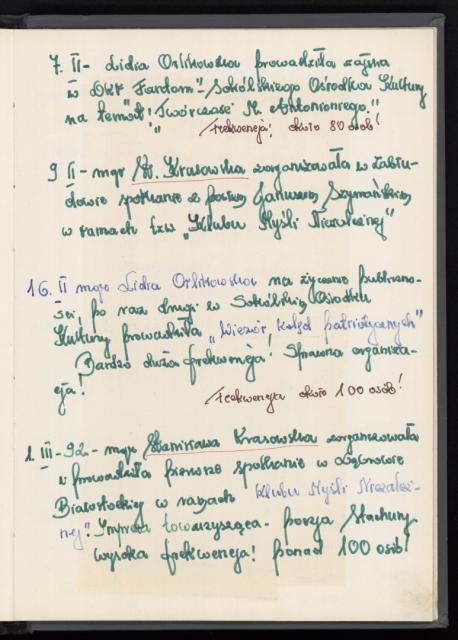 7. II - Lidia Orlikowska prowadziła zajęcia
w DKF "Fardom" - Sokólskiego Ośrodka Kultury
na temat: "Twórczość M. Antonioniego."
Frekwencja: około 80 osób!
9 II - mgr St. Krasowska zorganizowała w Zabłu-
dowie spotkanie z poetą Januszem Szymańskim
w ramach tzw. "Klubu Myśli Niezależnej"
16. II mgr Lidia Orlikowska na życzenie publiczno-
ści, po raz drugi w Sokólskim Ośrodku
Kultury prowadziła "Wieczór kolęd patriotycznych"
Bardzo duża frekwencja! Sprawna organiza-
cja!
Frekwencja około 100 osób!
1. III - 92 - mgr Stanisława Krasowska zorganizowała
i prowadziła pierwsze spotkanie w Dąbrowie
Białostockiej w ramach Klubu Myśli Niezależ-
nej". Impreza towarzysząca - poezja Stachury
wysoka frekwencja! ponad 100 osób!